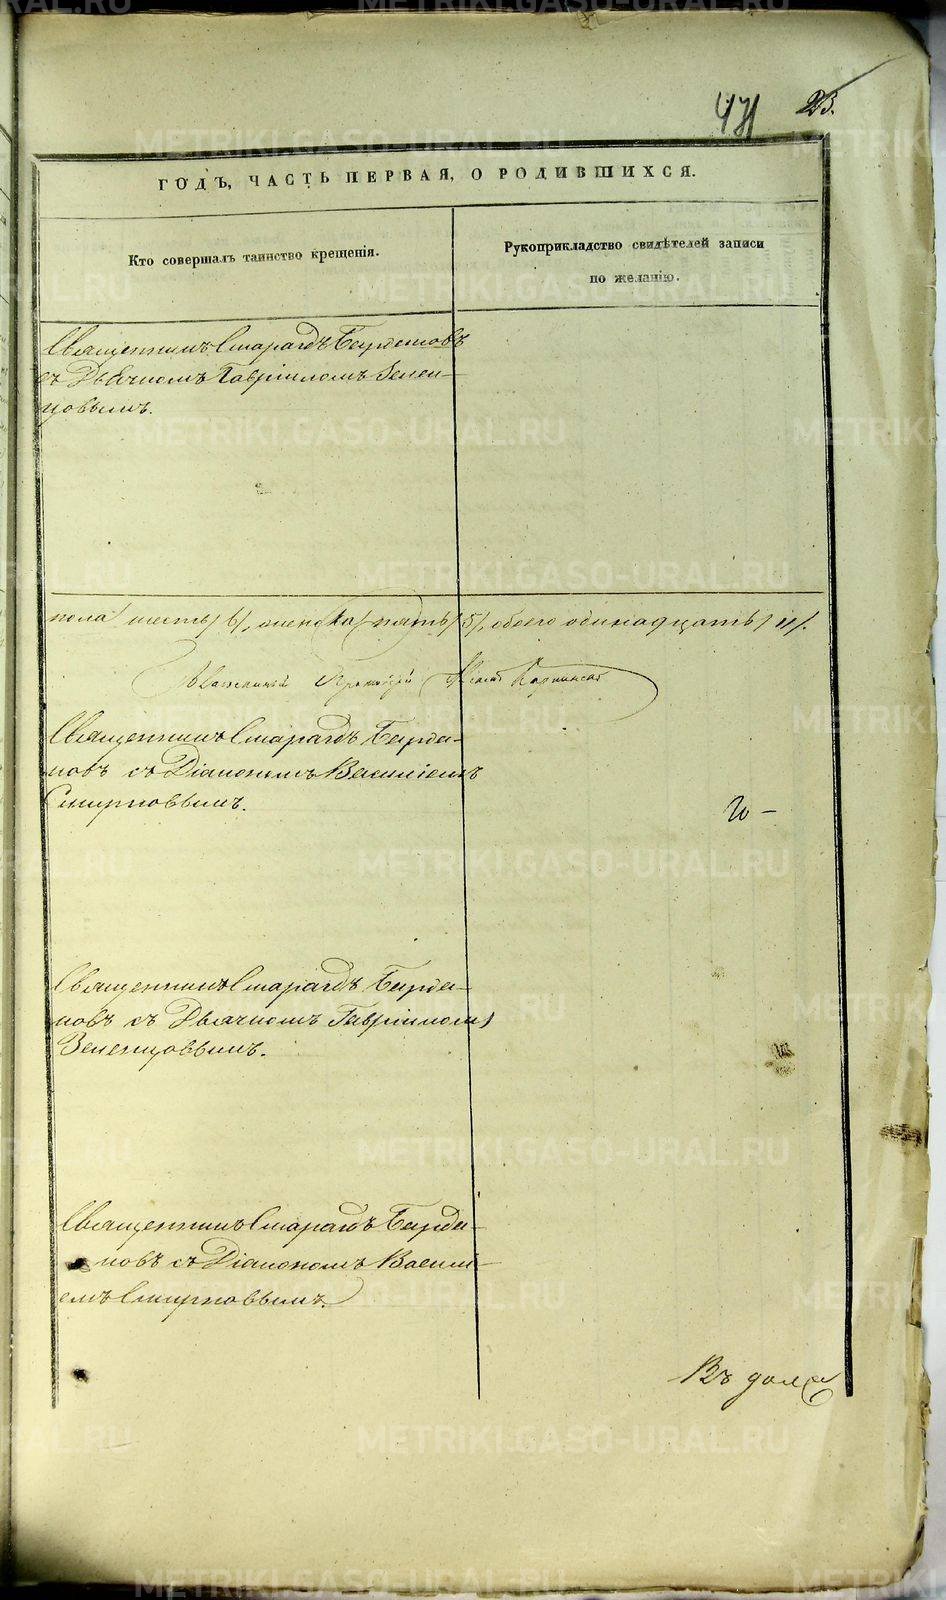 471 23.
ГОДЪ, ЧАСТЬ ПЕРВАЯ, О РОДИВШИХСЯ.
Кто совершалъ таинство крещенія.
Рукоприкладство свидѣтелей записи
по желанію.
Священникъ Смарагдъ
съ Дьячкомъ Гавріиломъ Зелен-
цовымъ.
пола шесть /6/, женска пять /5/, обоего одинадцать /11/.
Священникъ Смарагдъ
новъ съ Діакономъ Василіемъ
Смирновымъ.
Священникъ Смарагдъ
новъ съ Дьячкомъ Гавріиломъ
Зеленцовымъ.
Священникъ Смарагдъ
новъ съ Діакономъ Василі-
емъ Смирновымъ.
Въ
METRIKI.GASO-URAL.RU